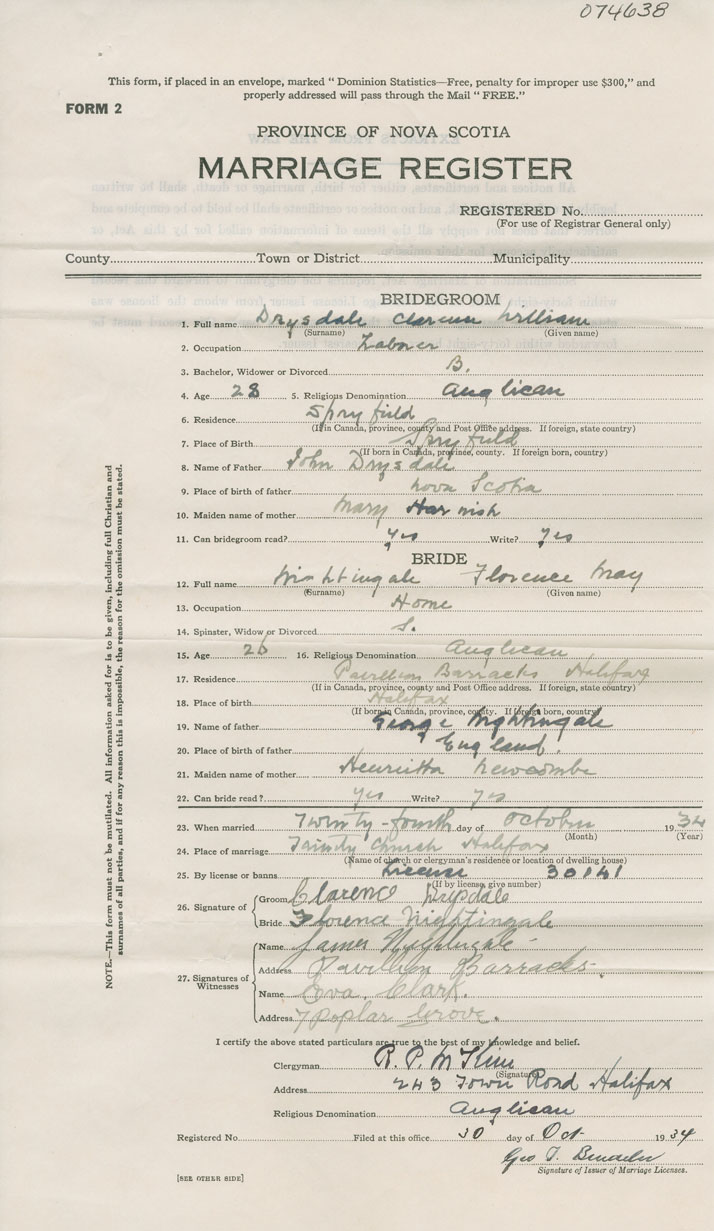 074638
This form, if placed in an envelope, marked “ Dominion Statistics—Free, penalty for improper use $300,” and
properly addressed will pass through the Mail “ FREE.”
FORM 2
PROVINCE OF NOVA SCOTIA
MARRIAGE REGISTER
REGISTERED No.
(For use of Registrar General only)
County Town or District Municipality
BRIDEGROOM
1. Full name Drysdale Clarence William
(Surname) (Given name)
2. Occupation Laborer
3. Bachelor, Widower or Divorced B.
4. Age 28 5. Religious Denomination Anglican
6. Residence Spryfield
(If in Canada, province, county and Post Office address. If foreign, state country)
7. Place of Birth Spryfield
(If born in Canada, province, county. If foreign born, country)
8. Name of Father John Drysdale
9. Place of birth of father Nova Scotia
10. Maiden name of mother Mary Harnish
11. Can bridegroom read? yes Write? yes
BRIDE
12. Full name Nightingale Florence May
(Surname) (Given name)
13. Occupation Home
14. Spinster, Widow or Divorced S.
15. Age 26 16. Religious Denomination Anglican
17. Residence Pavilion Barracks Halifax
(If in Canada, province, county and Post Office address. If foreign, state country)
18. Place of birth Halifax
(If born in Canada, province, county. If foreign born, country)
19. Name of father George Nightingale
20. Place of birth of father England.
21. Maiden name of mother Henrietta Newcombe
22. Can bride read? yes Write? yes
23. When married Twenty-fourth day of October 1934
(Month) (Year)
24. Place of marriage Trinity Church Halifax
(Name of church or clergyman's residence or location of dwelling house)
25. By license or banns License 30141
(If by license, give number)
26. Signature of Groom Clarence Drysdale
Bride Florence Nightingale
27. Signatures of Witnesses
Name James Nightingale
Address Pavilion Barracks.
Name Eva Clark.
Address 7 Poplar Grove.
I certify the above stated particulars are true to the best of my knowledge and belief.
Clergyman R. P. McKim
(Signature)
Address 243 Town Road Halifax
Religious Denomination Anglican
Registered No. Filed at this office 30 day of Oct 1934
Geo T.
Signature of Issuer of Marriage Licenses.
[SEE OTHER SIDE]
NOTE.—This form must not be mutilated. All information asked for is to be given, including full Christian and
surnames of all parties, and if for any reason this is impossible, the reason for the omission must be stated.